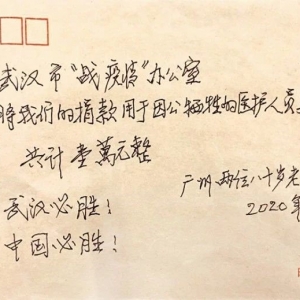 武汉市"战疫情"办公室
将我们的捐款用于因公牺牲的医护人员
共计壹萬元整
广州.两位八十岁老
2020年
武汉必胜!
中国必胜!